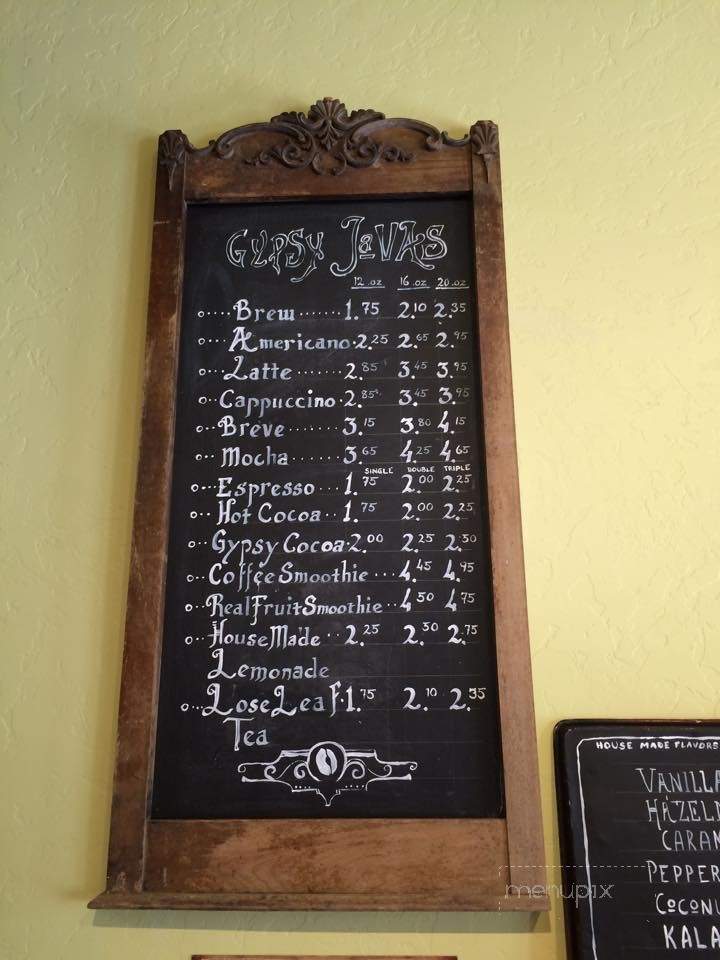 GYPSY JaVAS
12.oz 16.oz 20.oz
Brew 1.75 2.10 2.35
Americano 2.25 2.65 2.95
Latte 2.85 3.45 3.95
Cappuccino 2.85 3.45 3.95
Brevé 3.15 3.80 4.15
Mocha 3.65 4.25 4.65
SINGLE DOUBLE TRIPLE
Espresso 1.75 2.00 2.25
Hot Cocoa 1.75 2.00 2.25
Gypsy Cocoa 2.00 2.25 2.50
Coffee Smoothie 4.45 4.95
Real Fruit Smoothie 4.50 4.75
House Made 2.25 2.50 2.75
Lemonade
Lose Leaf 1.75 2.10 2.35
Tea
HOUSE MADE FLAVORS
VANILLA
CARAM
PEPPER
COCONU
KALA
menupix